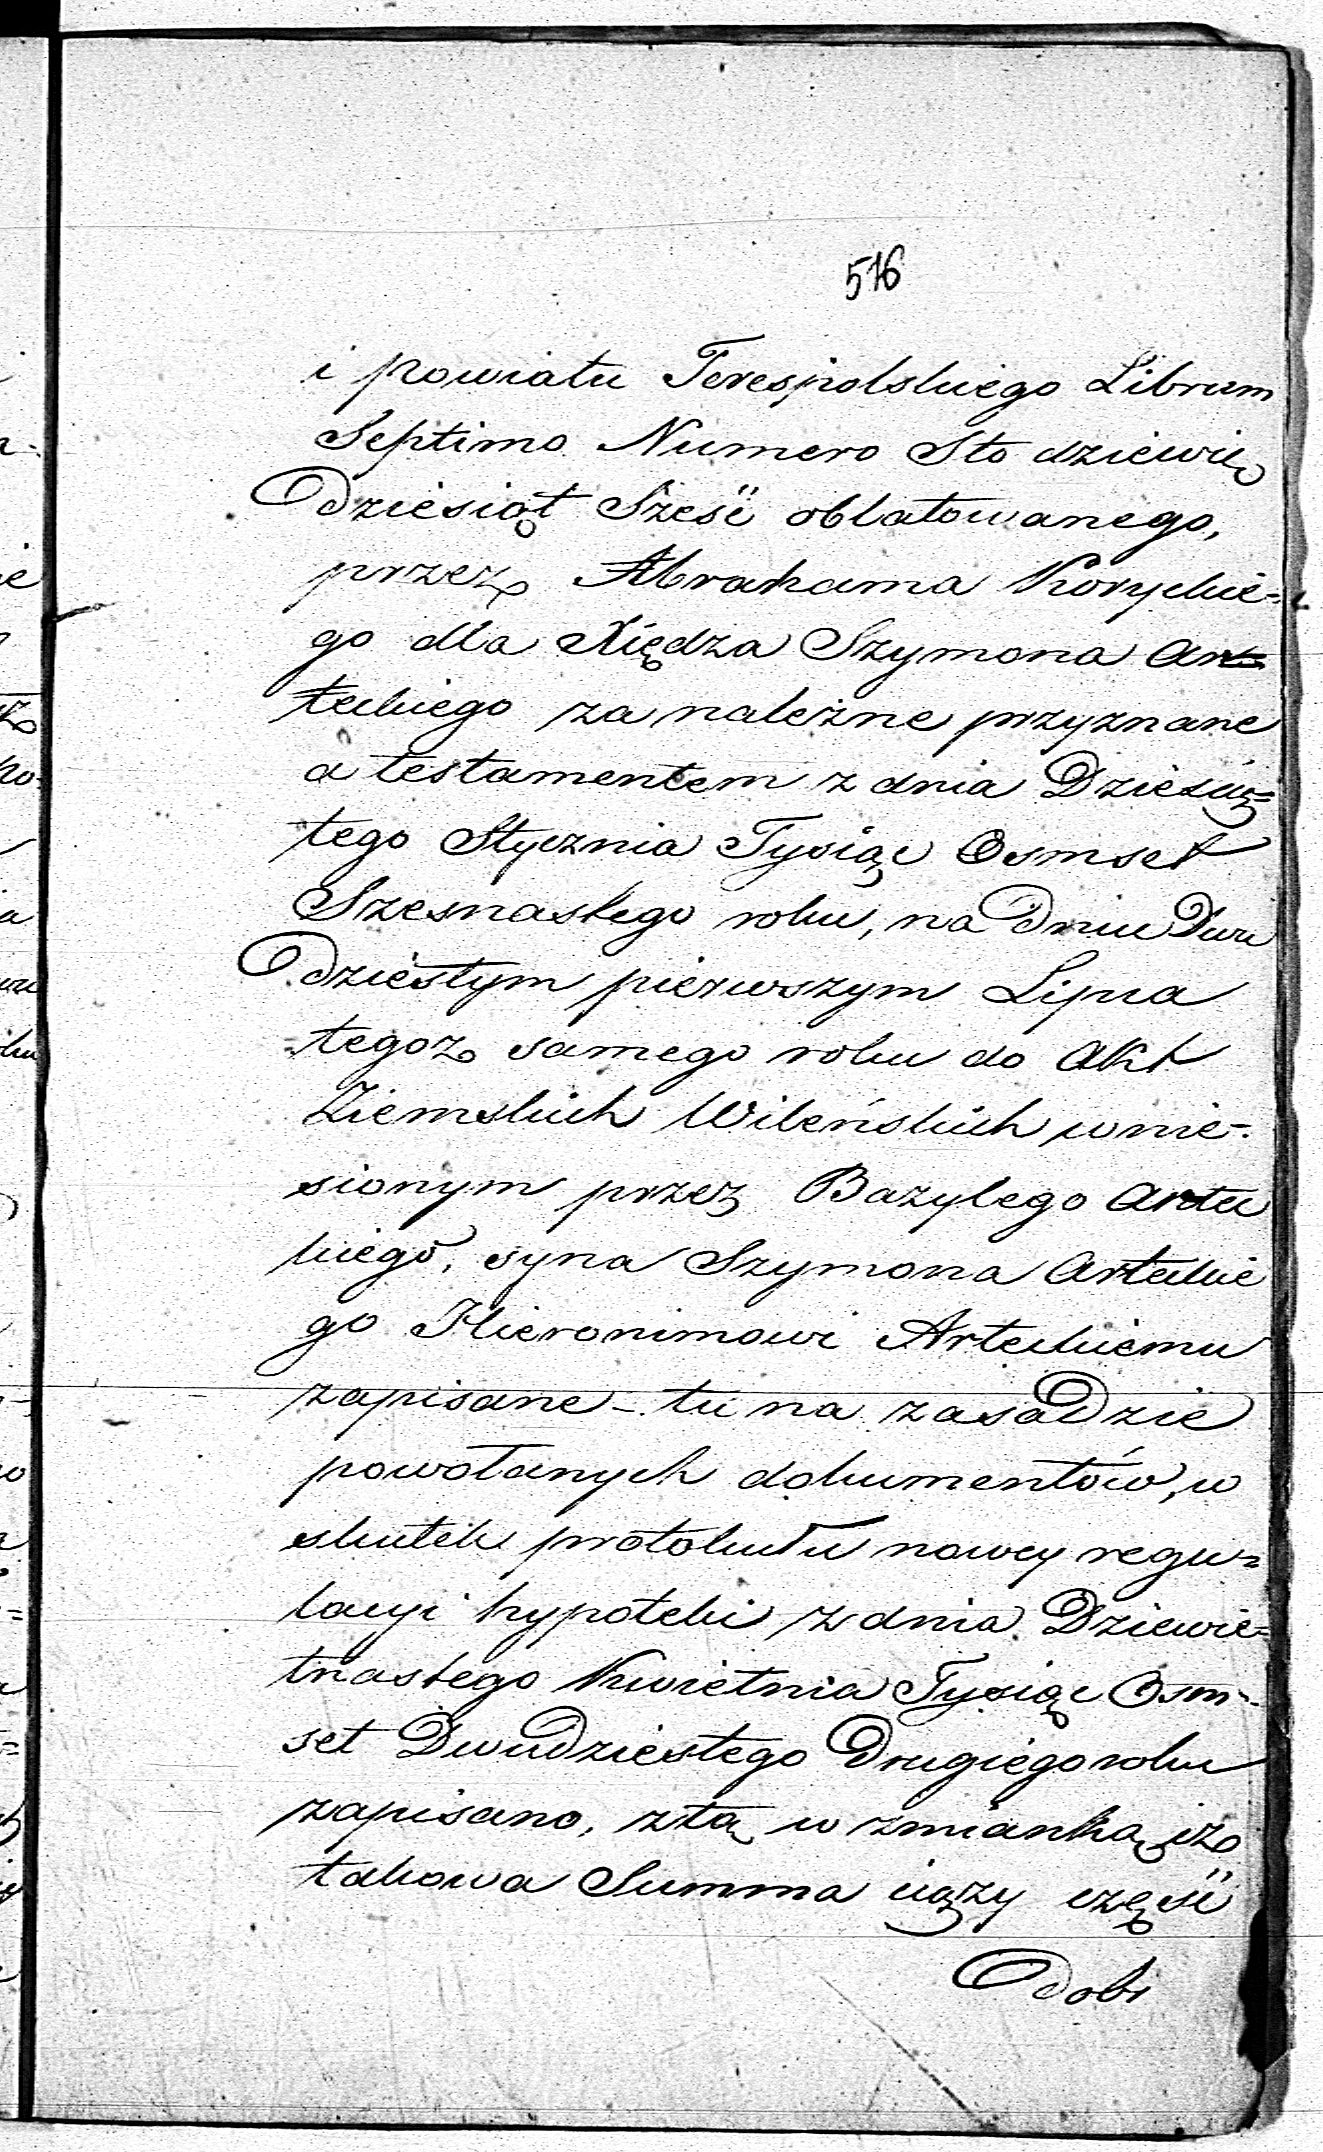 516
i powiatu Terespolskiego Librum
Septimo Numero Sto dziewię
dziesiąt Sześć oblatowanego,
przez Abrahama Koryckie-
go dla Xiędza Szymona Ar-
teckiego za należne przyznane
a testamentem z dnia Dziesią-
tego Stycznia Tysiąc Osmset
Szesnastego roku, na Dniu Dwu
dziestym pierwszym Lipca
tegoż samego roku do Akt
Ziemskich Wileńskich wnie-
sionym przez Bazylego Artec
kiego, syna Szymona Arteckie
go Hieronimowi Arteckiemu
zapisane – tu na zasadzie
powołanych dokumentów, w
skutek protokułu nowey regu-
lacyi hypoteki z dnia Dziewię-
tnastego Kwietnia Tysiąc Osm-
set Dwudziestego Drugiego roku
zapisano, z tą wzmianką iż
takowa Summa ciąży część
dobr